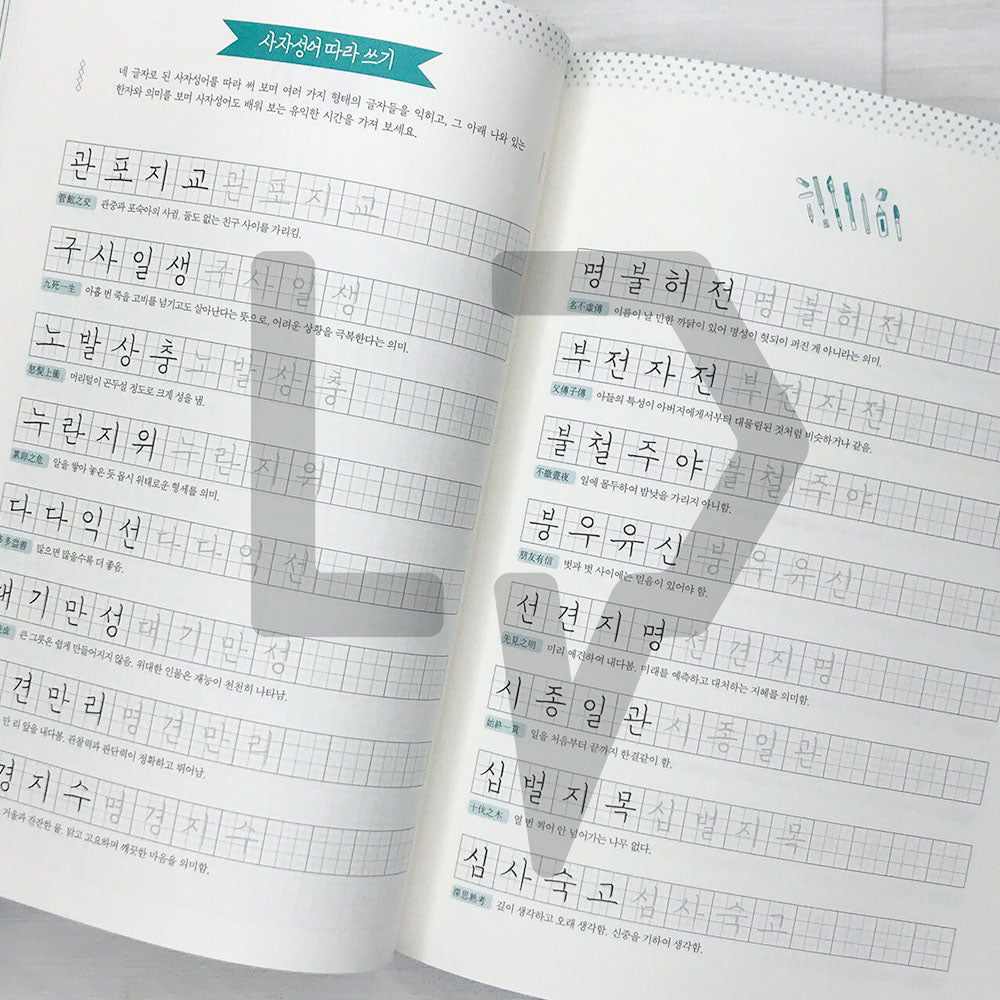 사자성어 따라 쓰기
네 글자로 된 사자성어를 따라 써 보며 여러 가지 형태의 글자들을 익히고, 그 아래 나와 있는
한자와 의미를 보며 사자성어도 배워 보는 유익한 시간을 가져 보세요.
관포지교 관포지교
管鮑之交 관중과 포숙아의 사귐. 둘도 없는 친구 사이를 가리킴.
구사일생 구사일생
九死一生 아홉 번 죽을 고비를 넘기고도 살아난다는 뜻으로, 어려운 상황을 극복한다는 의미.
노발상충 노발상충
怒髮上衝 머리털이 곤두설 정도로 크게 성을 냄.
누란지위 누란지위
累卵之危 알을 쌓아 놓은 듯 몹시 위태로운 형세를 의미.
다다익선 다다익선
多多益善 많으면 많을수록 더 좋음.
대기만성 대기만성
晩成 큰 그릇은 쉽게 만들어지지 않음. 위대한 인물은 재능이 천천히 나타남.
견만리 명견만리
만 리 앞을 내다봄. 관찰력과 판단력이 정확하고 뛰어남.
경지수 명경지수
거울과 잔잔한 물. 맑고 고요하며 깨끗한 마음을 의미함.
명불허전 명불허전
名不虛傳 이름이 날 만한 까닭이 있어 명성이 헛되이 퍼진 게 아니라는 의미.
부전자전 부전자전
父傳子傳 아들의 특성이 아버지에게서부터 대물림된 것처럼 비슷하거나 같음.
불철주야 불철주야
不撤晝夜 일에 몰두하여 밤낮을 가리지 아니함.
붕우유신 붕우유신
朋友有信 벗과 벗 사이에는 믿음이 있어야 함.
선견지명 선견지명
先見之明 미리 예견하여 내다봄. 미래를 예측하고 대처하는 지혜를 의미함.
시종일관 시종일관
始終一貫 일을 처음부터 끝까지 한결같이 함.
십벌지목 십벌지목
十伐之木 열 번 찍어 안 넘어가는 나무 없다.
심사숙고 심사숙고
深思熟考 깊이 생각하고 오래 생각함. 신중을 기하여 생각함.